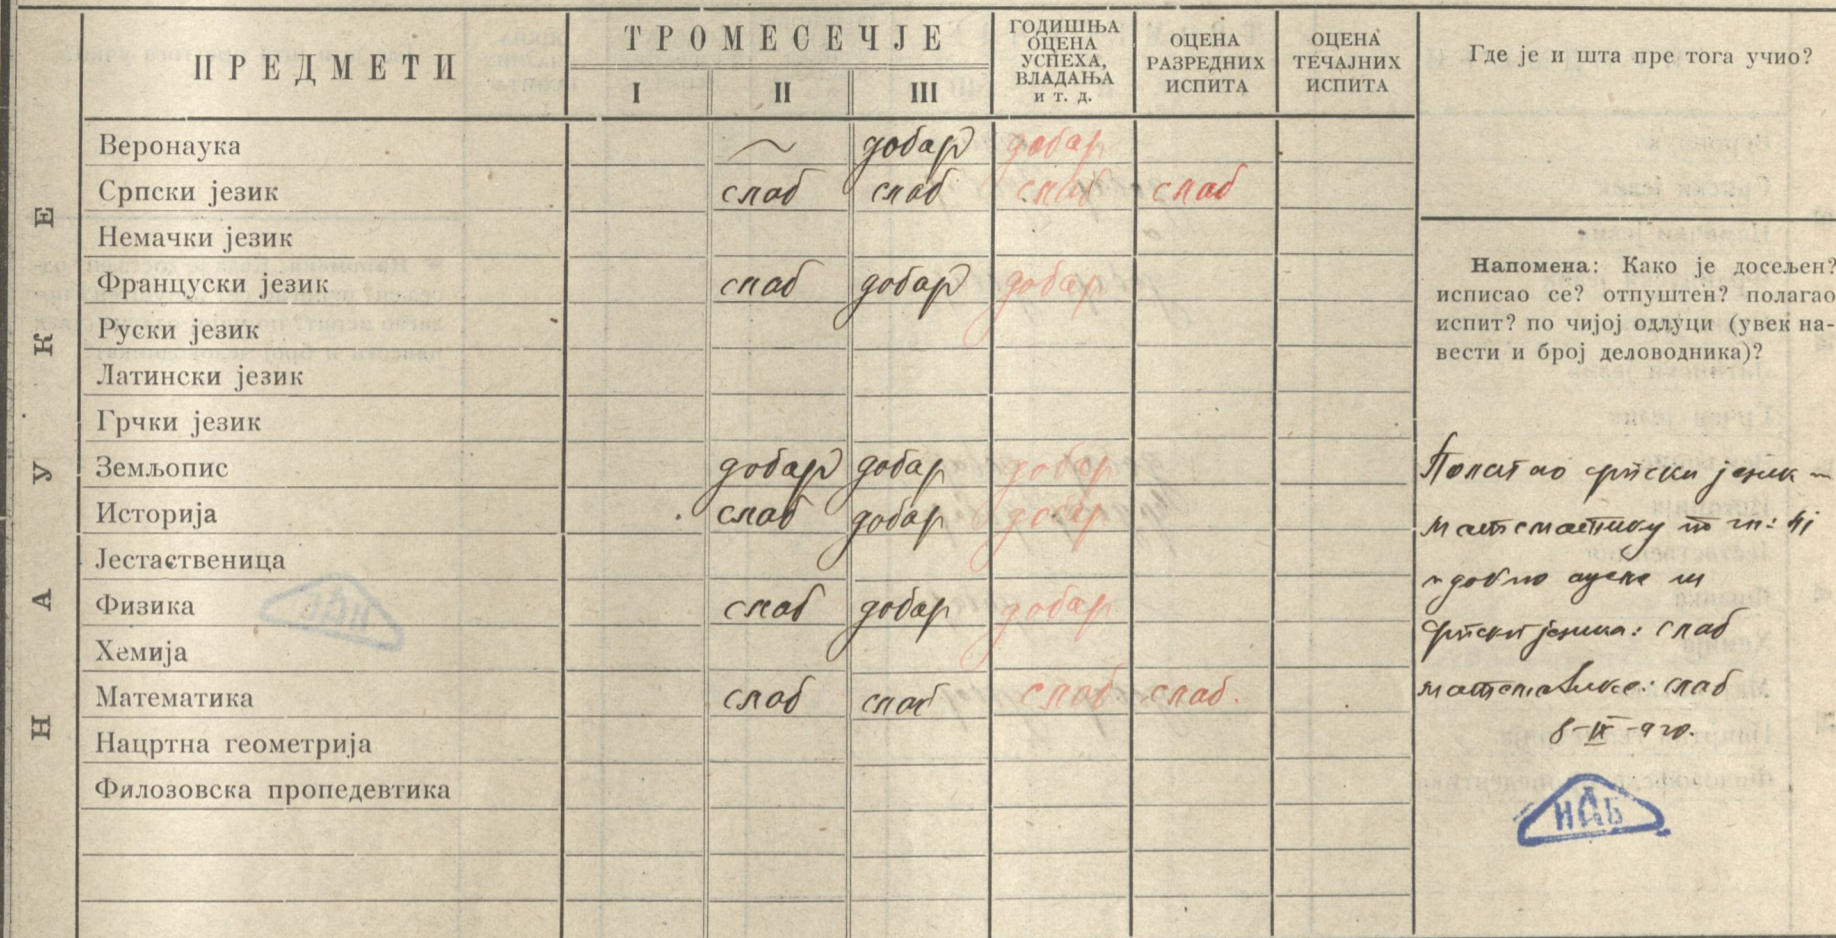 ПРЕДМЕТИ
ТРОМЕСЕЧЈЕ
I II III
ГОДИШЊА
ОЦЕНА
УСПЕХА,
ВЛАДАЊА
и т. д.
ОЦЕНА
РАЗРЕДНИХ
ИСПИТА
ОЦЕНА
ТЕЧАЈНИХ
ИСПИТА
Где је и шта пре тога учио?
НАУКЕ
Веронаука ~ добар добар
Српски језик слаб слаб слаб слаб
Немачки језик
Француски језик слаб добар добар
Руски језик
Латински језик
Грчки језик
Земљопис добар добар добар
Историја слаб добар добар
Јестаственица
Физика слаб добар добар
Хемија
Математика слаб слаб слаб слаб.
Нацртна геометрија
Филозовска пропедевтика
Напомена: Како је досељен?
исписао се? отпуштен? полагао
испит? по чијој одлуци (увек на-
вести и број деловодника)?
Полагао српски језик и
математику по чл:
и добио оцене из
српског језика: слаб
математике: слаб
8-IX-920.
ИАБ